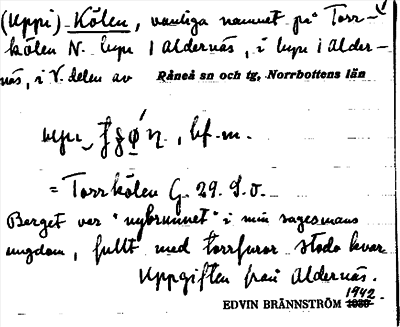 (Uppi) Kölen, vanliga namnet på Torr-
kölen N. byn i Aldernäs, i byn i Alder-
näs, i V. delen av Råneå sn och tg, Norrbottens län
, bf. m.
= Torrkölen G. 29. S.O.
Berget var "nybrunnet" i min sagesmans
ungdom, fullt med torrfuror stodo kvar
Uppgiften från Aldernäs.
1942
EDVIN BRÄNNSTRÖM